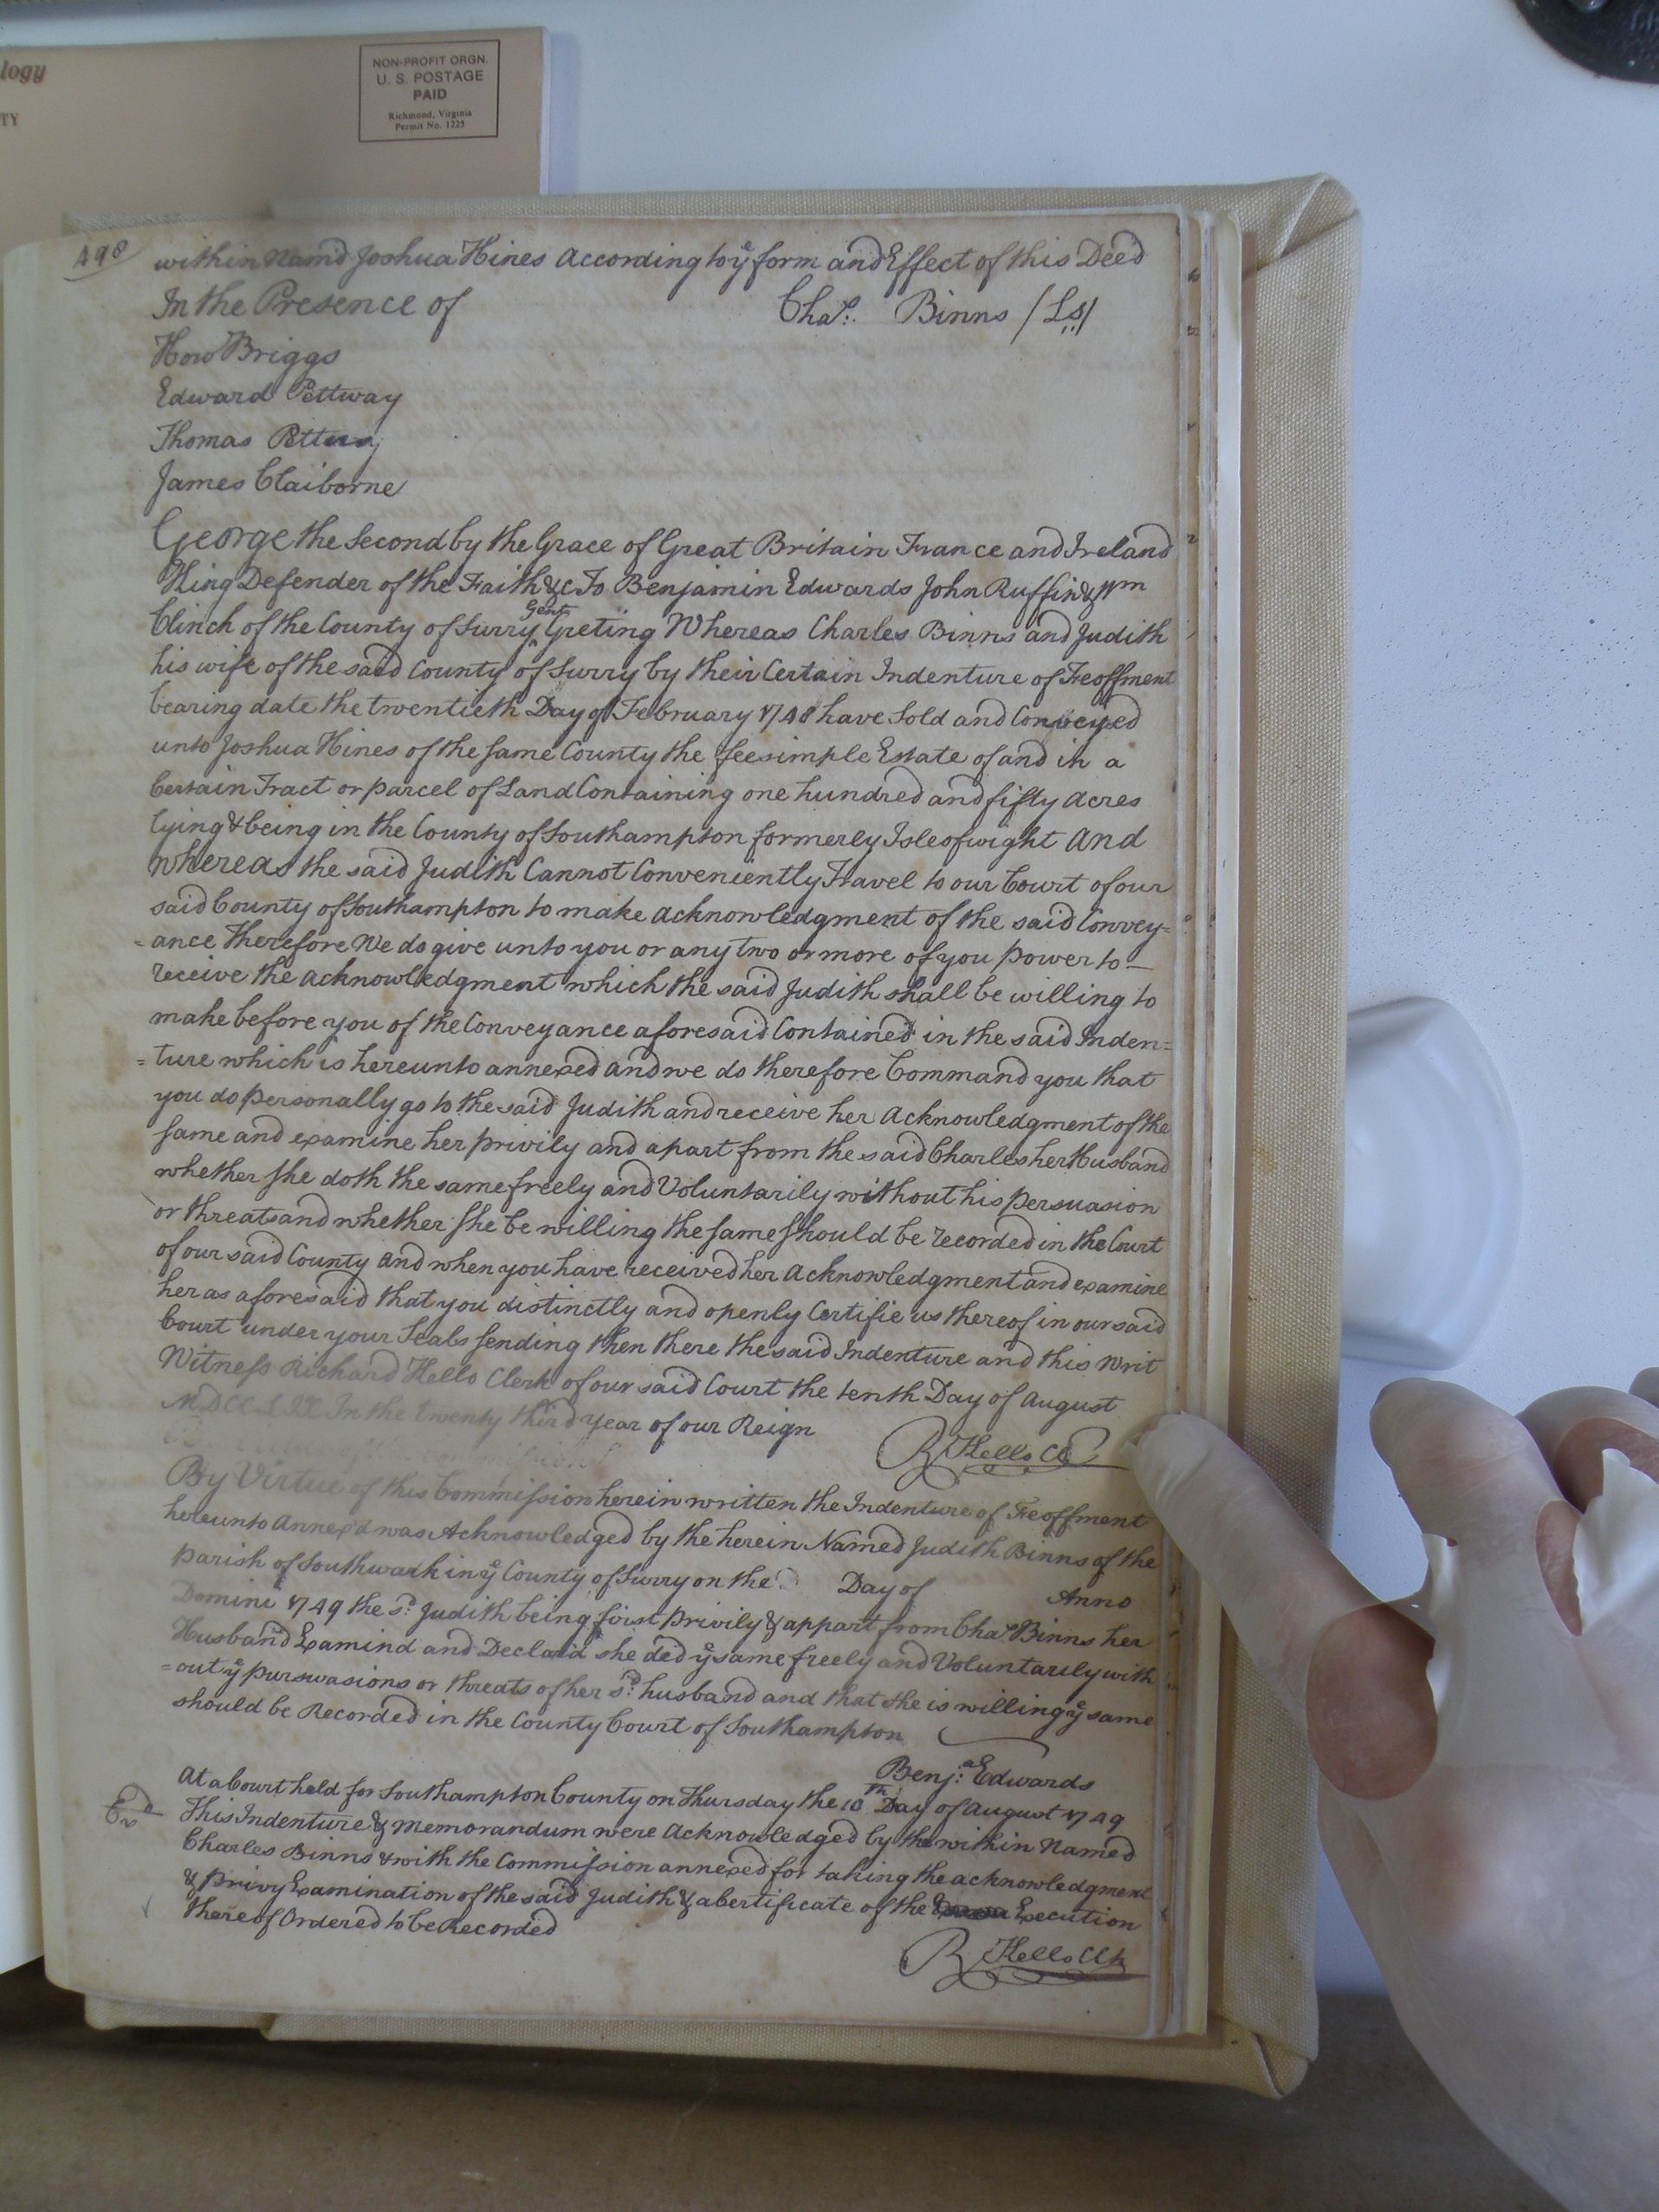 logy
TY
NON-PROFIT ORGN.
U. S. POSTAGE
PAID
Richmond, Virginia
Permit No. 1225
498
within Nam'd Joshua Hines According to ye form and Effect of this Deed
In the Presence of
Chas. Binns /LS/
How Briggs
Edward Pettway
Thomas Pettway
James Claiborne
George the Second by the Grace of Great Britain France and Ireland
King Defender of the Faith &c To Benjamin Edwards John Ruffin & Wm
Clinch of the County of Surry Gent Greting Whereas Charles Binns and Judith
his wife of the said County of Surry by their Certain Indenture of Feoffment
bearing date the twentieth Day of February 1748 have Sold and Conveyed
unto Joshua Hines of the same County the feesimple Estate of and in a
Certain Tract or parcel of Land Containing one hundred and fifty Acres
lying & being in the County of Southampton formerly Isleofwight And
whereas the said Judith Cannot Conveniently Travel to our Court of our
said County of Southampton to make Acknowledgment of the said Convey=
=ance Therefore We do give unto you or any two or more of you power to
receive the Acknowledgment which the said Judith shall be willing to
make before you of the Conveyance aforesaid Contained in the said Inden=
=ture which is hereunto annexed and we do therefore Command you that
you do personally go to the said Judith and receive her Acknowledgment of the
same and examine her privily and apart from the said Charles her Husband
whether she doth the same freely and Voluntarily without his persuasion
or threats and whether she be willing the same should be recorded in the Court
of our said County and when you have received her Acknowledgment and examine
her as aforesaid that you distinctly and openly Certifie us thereof in our said
Court under your Seals sending then there the said Indenture and this Writ
Witness Richard Kello Clerk of our said Court the tenth Day of August
In the twenty third year of our Reign
R Kello Cl
By Virtue of this Commission herein written the Indenture of Feoffment
hereunto Annex'd was Acknowledged by the herein Named Judith Binns of the
parish of Southwark in ye County of Surry on the Day of Anno
Domini 1749 the sd. Judith being first privily & appart from Chas Binns her
Husband Examind and Declar'd she ded ye same freely and Voluntarily with
=out ye purswasions or threats of her sd. husband and that she is willing ye same
should be Recorded in the County Court of Southampton
Benj.a Edwards
At a Court held for Southampton County on Thursday the 10th Day of August 1749
Exd
This Indenture & Memorandum were Acknowledged by the within Named
Charles Binns & with the Commission annexed for taking the acknowledgment
& Privy Examination of the said Judith & a Certificate of the Execution
thereof Ordered to be Recorded
R Kello Clk